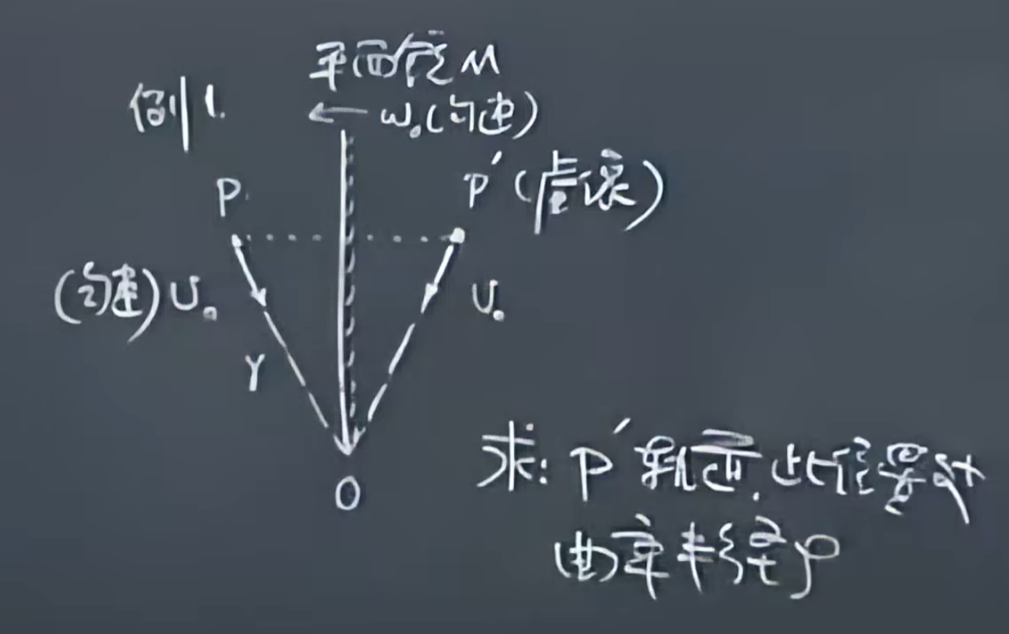 平面镜M
例1. ← ω₀(匀速)
P P′(虚像)
(匀速)υ₀ υ₀
r
O
求:P′轨迹,此位置处
曲率半径ρ